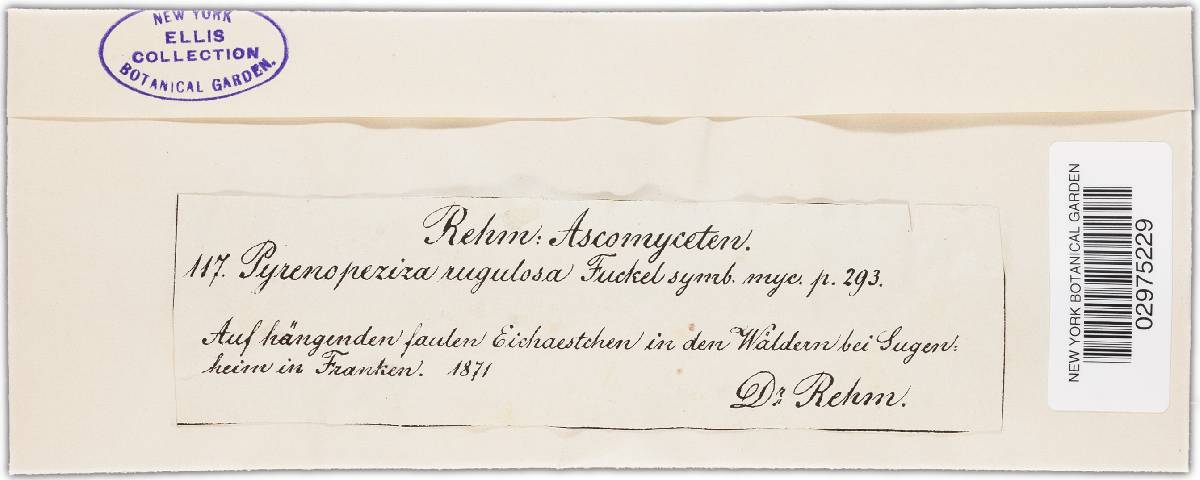 NEW YORK
ELLIS
COLLECTION
BOTANICAL GARDEN.
Rehm: Ascomyceten.
117. Pyrenopeziza rugulosa Fuckel symb. myc. p. 293.
Auf hängenden faulen Eichaestchen in den Wäldern bei Sugen:
heim in Franken. 1871
Dr Rehm.
NEW YORK BOTANICAL GARDEN
02975229